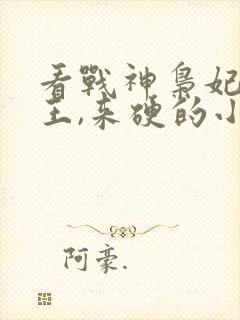 看戰神梟妃
王,来硬的小
阿豪.